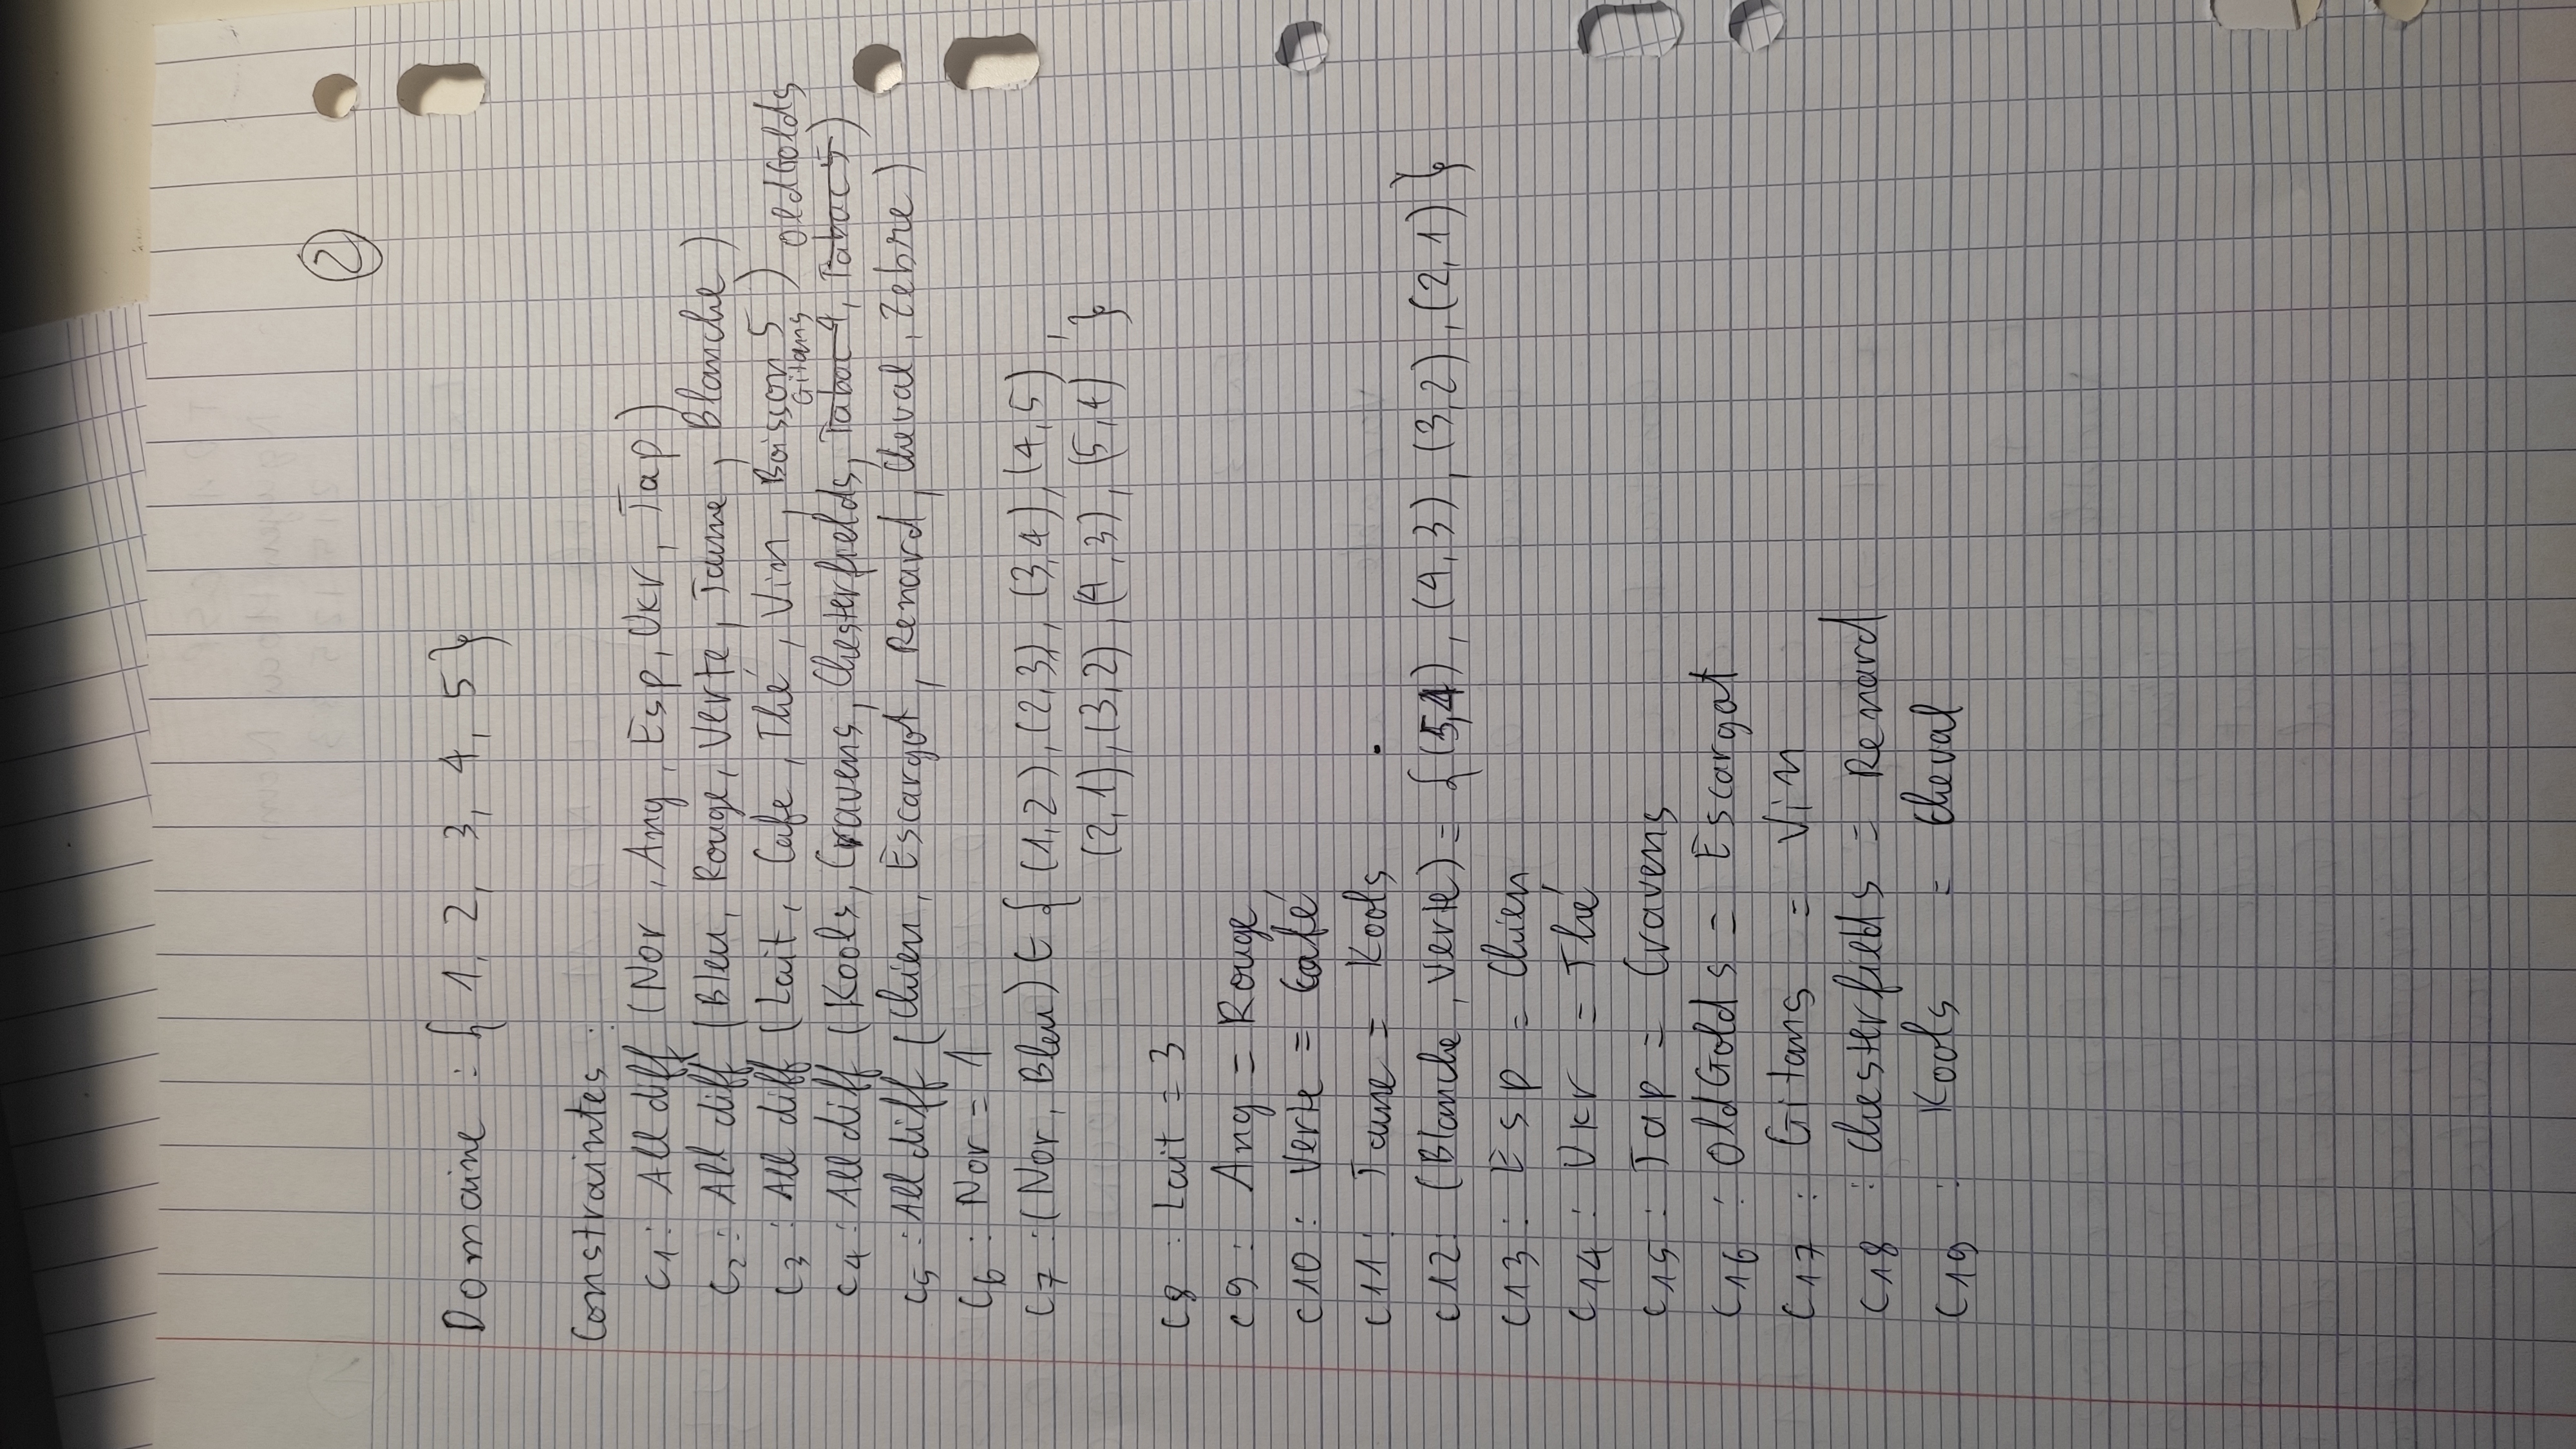 2
Domaine : { 1, 2, 3, 4, 5 }
Constraintes :
C1 : All diff (Nor, Ang, Esp, Ukr, Jap)
C2 : All diff (Bleu, Rouge, Verte, Jaune, Blanche)
C3 : All diff (Lait, Cafe, Thé, Vin, Boisson 5)
Gitans OldGolds
C4 : All diff (Kools, Cravens, Chesterfields, Tabac 4, Tabac 5)
C5 : All diff (Chien, Escargot, Renard, Cheval, Zebre)
C6 : Nor = 1
C7 : (Nor, Bleu) ∈ { (1,2), (2,3), (3,4), (4,5),
(2,1), (3,2), (4,3), (5,4) }
C8 : Lait = 3
C9 : Ang = Rouge
C10 : Verte = Café
C11 : Jaune = Kools
C12 : (Blanche, Verte) = { (5,4), (4,3), (3,2), (2,1) }
C13 : Esp = Chien
C14 : Ukr = Thé
C15 : Jap = Cravens
C16 : OldGolds = Escargot
C17 : Gitans = Vin
C18 : Chesterfields = Renard
C19 : Kools = Cheval